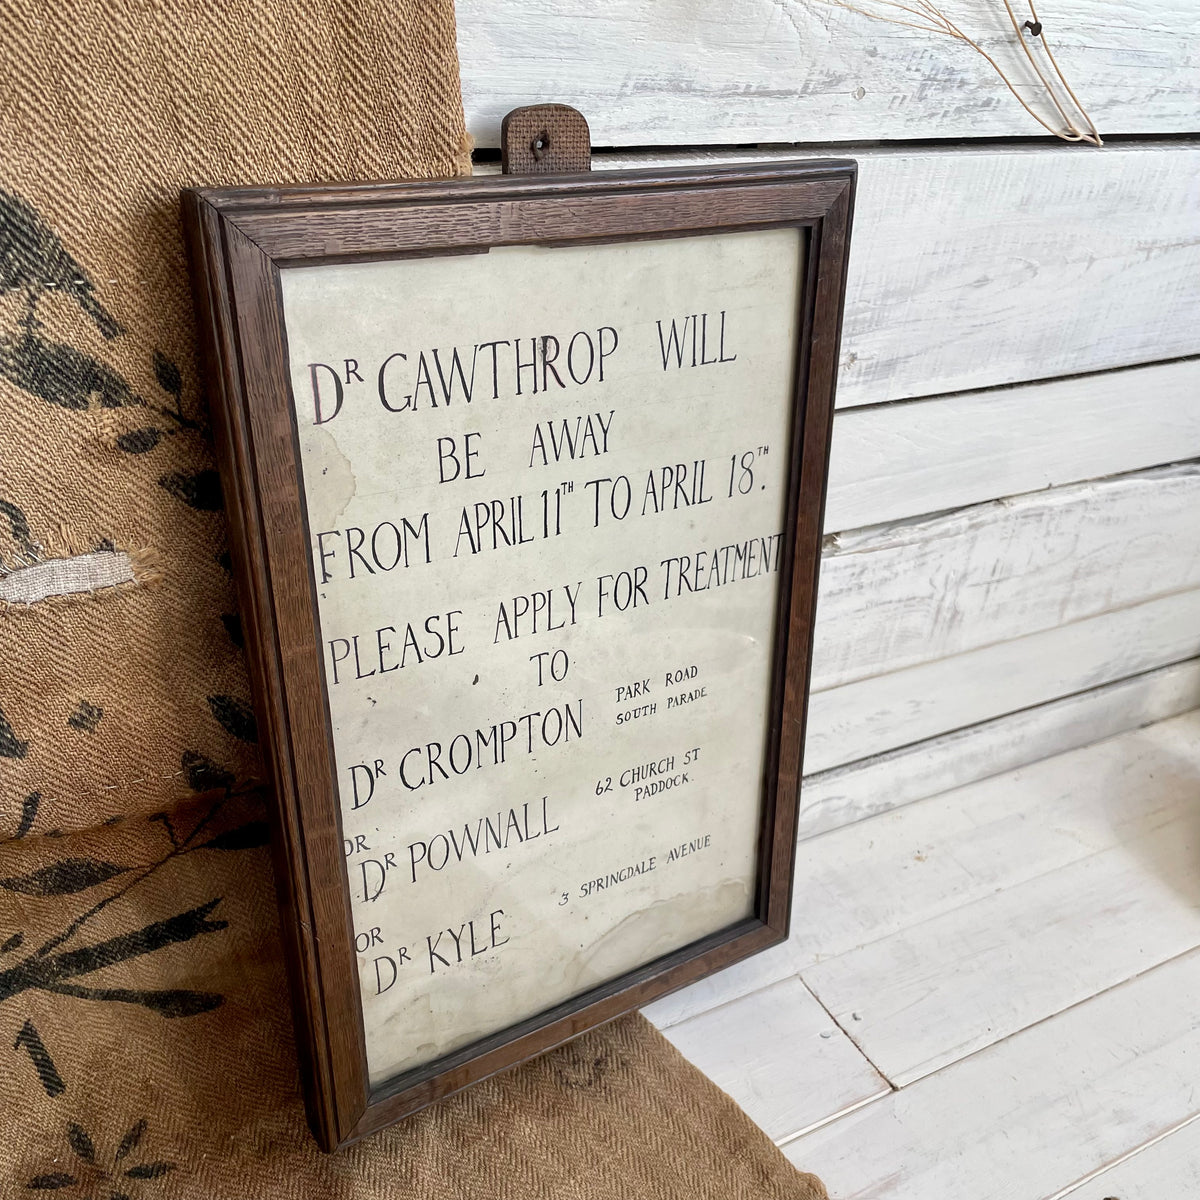 DR GAWTHROP WILL
BE AWAY
FROM APRIL 11TH TO APRIL 18TH.
PLEASE APPLY FOR TREATMENT
TO
DR CROMPTON PARK ROAD
SOUTH PARADE
OR
DR POWNALL 62 CHURCH ST
PADDOCK.
OR
DR KYLE 3 SPRINGDALE AVENUE
1